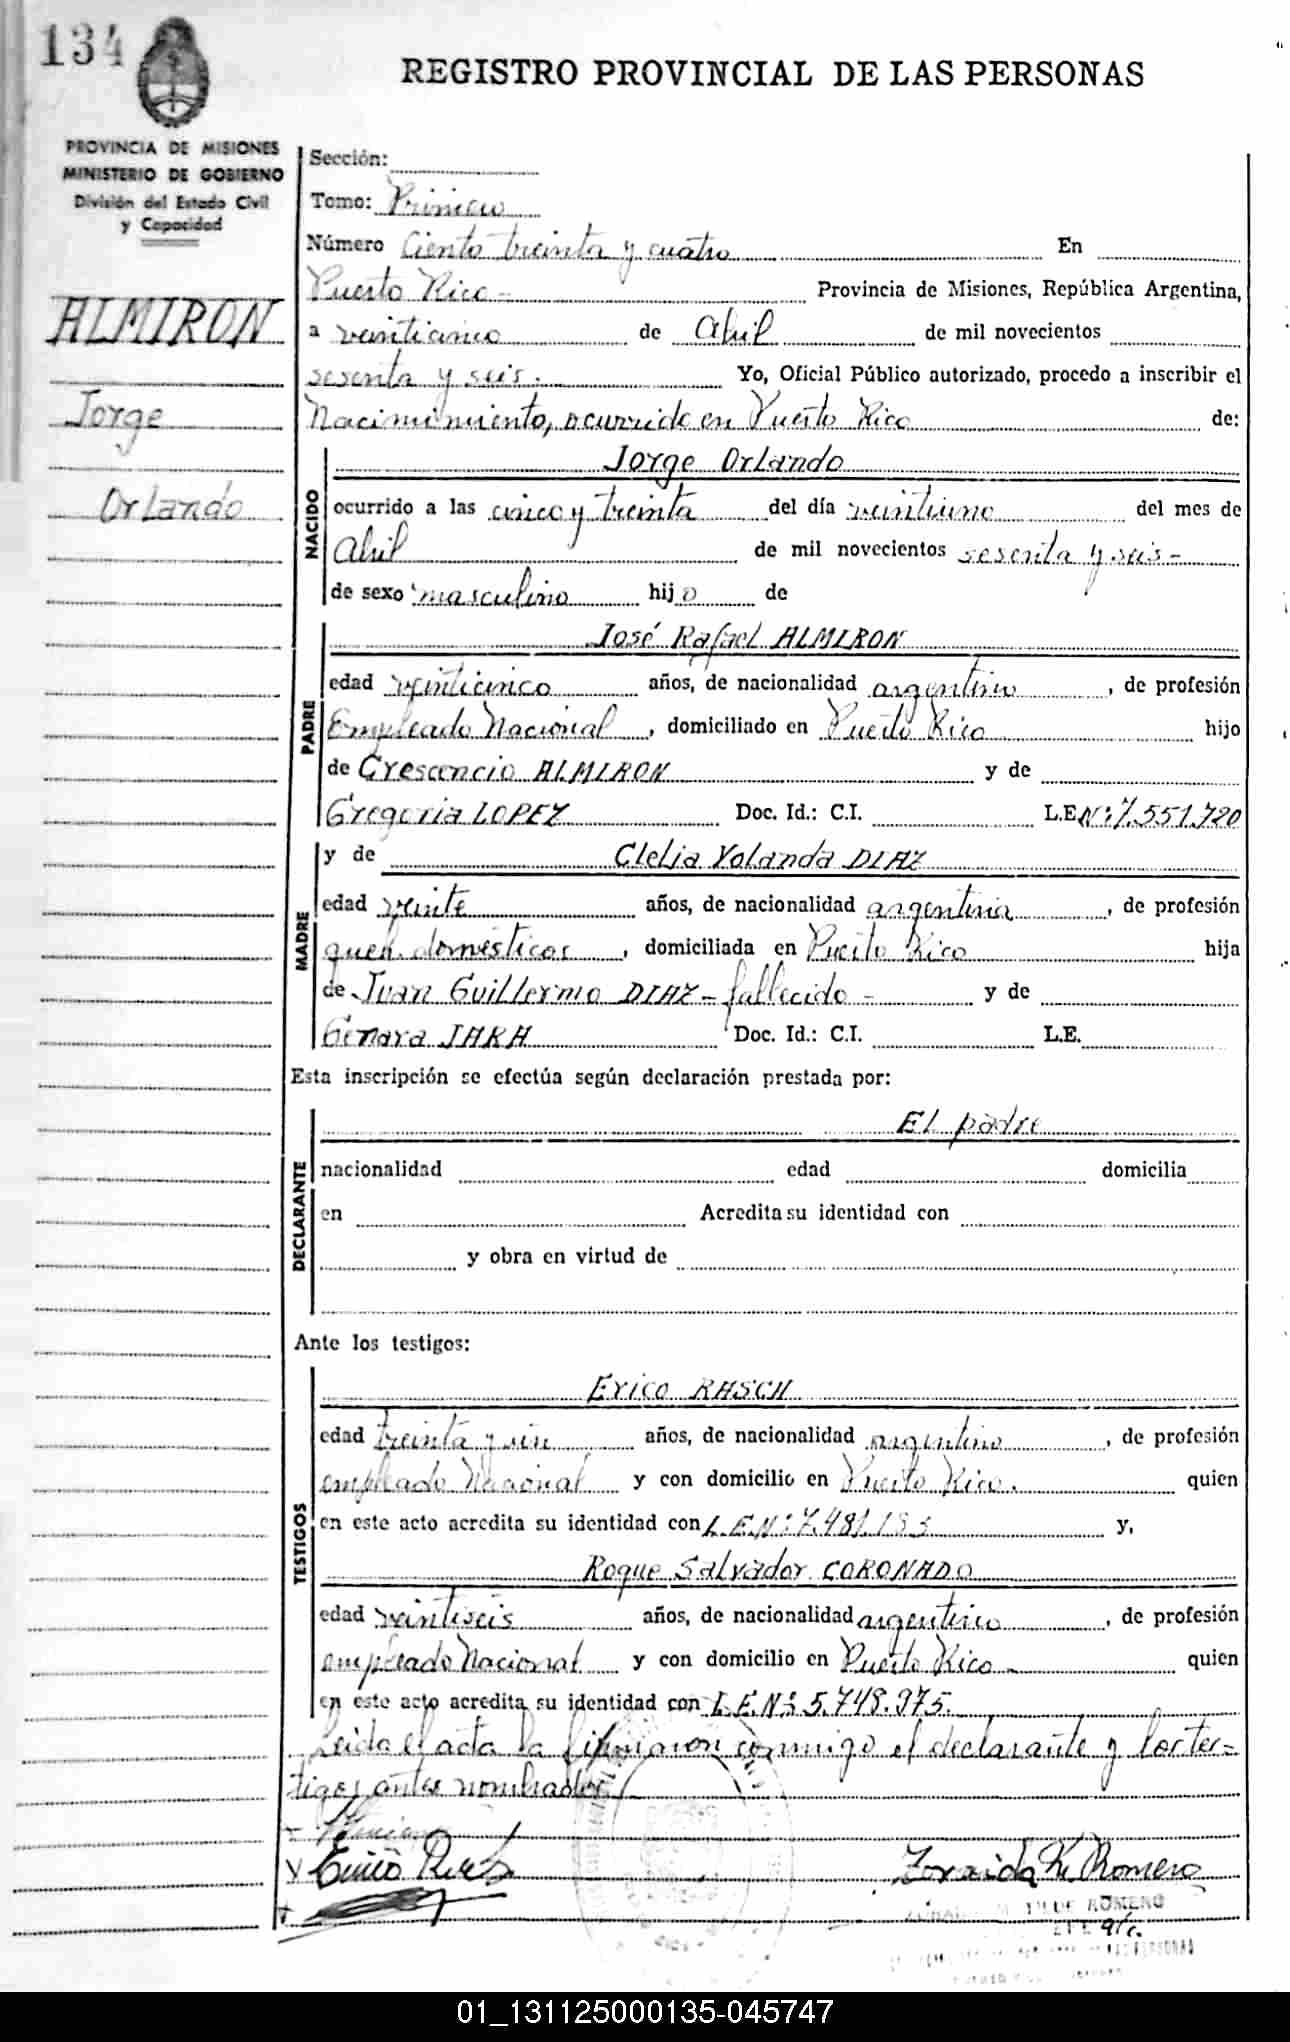 134
REGISTRO PROVINCIAL DE LAS PERSONAS
PROVINCIA DE MISIONES
MINISTERIO DE GOBIERNO
División del Estado Civil
y Capacidad
ALMIRON
Jorge
Orlando
Sección:
Tomo: Primero
Número Ciento treinta y cuatro En
Puerto Rico - Provincia de Misiones, República Argentina,
a veinticinco de Abril de mil novecientos
sesenta y seis. Yo, Oficial Público autorizado, procedo a inscribir el
Nacimimiento, ocurrido en Puerto Rico de:
NACIDO
Jorge Orlando
ocurrido a las cinco y treinta del día veintiuno del mes de
Abril de mil novecientos sesenta y seis -
de sexo masculino hijo de
PADRE
José Rafael ALMIRON
edad veinticinco años, de nacionalidad argentino, de profesión
Empleado Nacional, domiciliado en Puerto Rico hijo
de Crescencio ALMIRON y de
Gregoria LOPEZ Doc. Id.: C.I. L.E. Nº: 7.551.720
MADRE
y de Clelia Yolanda DIAZ
edad veinte años, de nacionalidad argentina, de profesión
queh. domésticos, domiciliada en Puerto Rico hija
de Juan Guillermo DIAZ - fallecido - y de
Genara JARA Doc. Id.: C.I. L.E.
Esta inscripción se efectúa según declaración prestada por:
DECLARANTE
El padre
nacionalidad edad domicilia
en Acredita su identidad con
y obra en virtud de
Ante los testigos:
TESTIGOS
Erico RASCH
edad treinta y un años, de nacionalidad argentino, de profesión
empleado Nacional y con domicilio en Puerto Rico. quien
en este acto acredita su identidad con L.E.Nº: 7.481.183 y,
Roque Salvador CORONADO
edad veintiseis años, de nacionalidad argentino, de profesión
empleado Nacional y con domicilio en Puerto Rico - quien
en este acto acredita su identidad con L.E.Nº: 5.748.975.
Leida el acta la firmaron conmigo el declarante y los tes-
tigos antes nombrados
Zoraida K. Romero
DE ROMERO
01_131125000135-045747